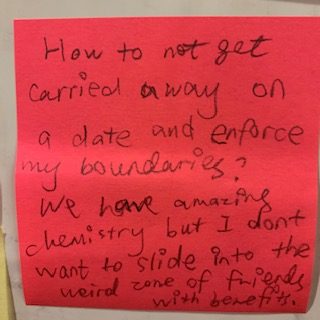 How to not get
carried away on
a date and enforce
my boundaries?
We have amazing
chemistry but I dont
want to slide into the
weird zone of friends
with benefits.